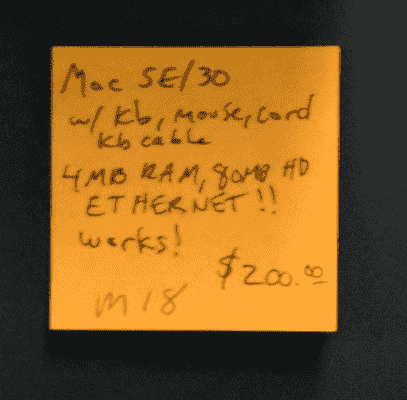 Mac SE/30
w/ kb, mouse, cord
kb cable
4MB RAM, 80MB HD
ETHERNET!!
works!
$200.00
M18